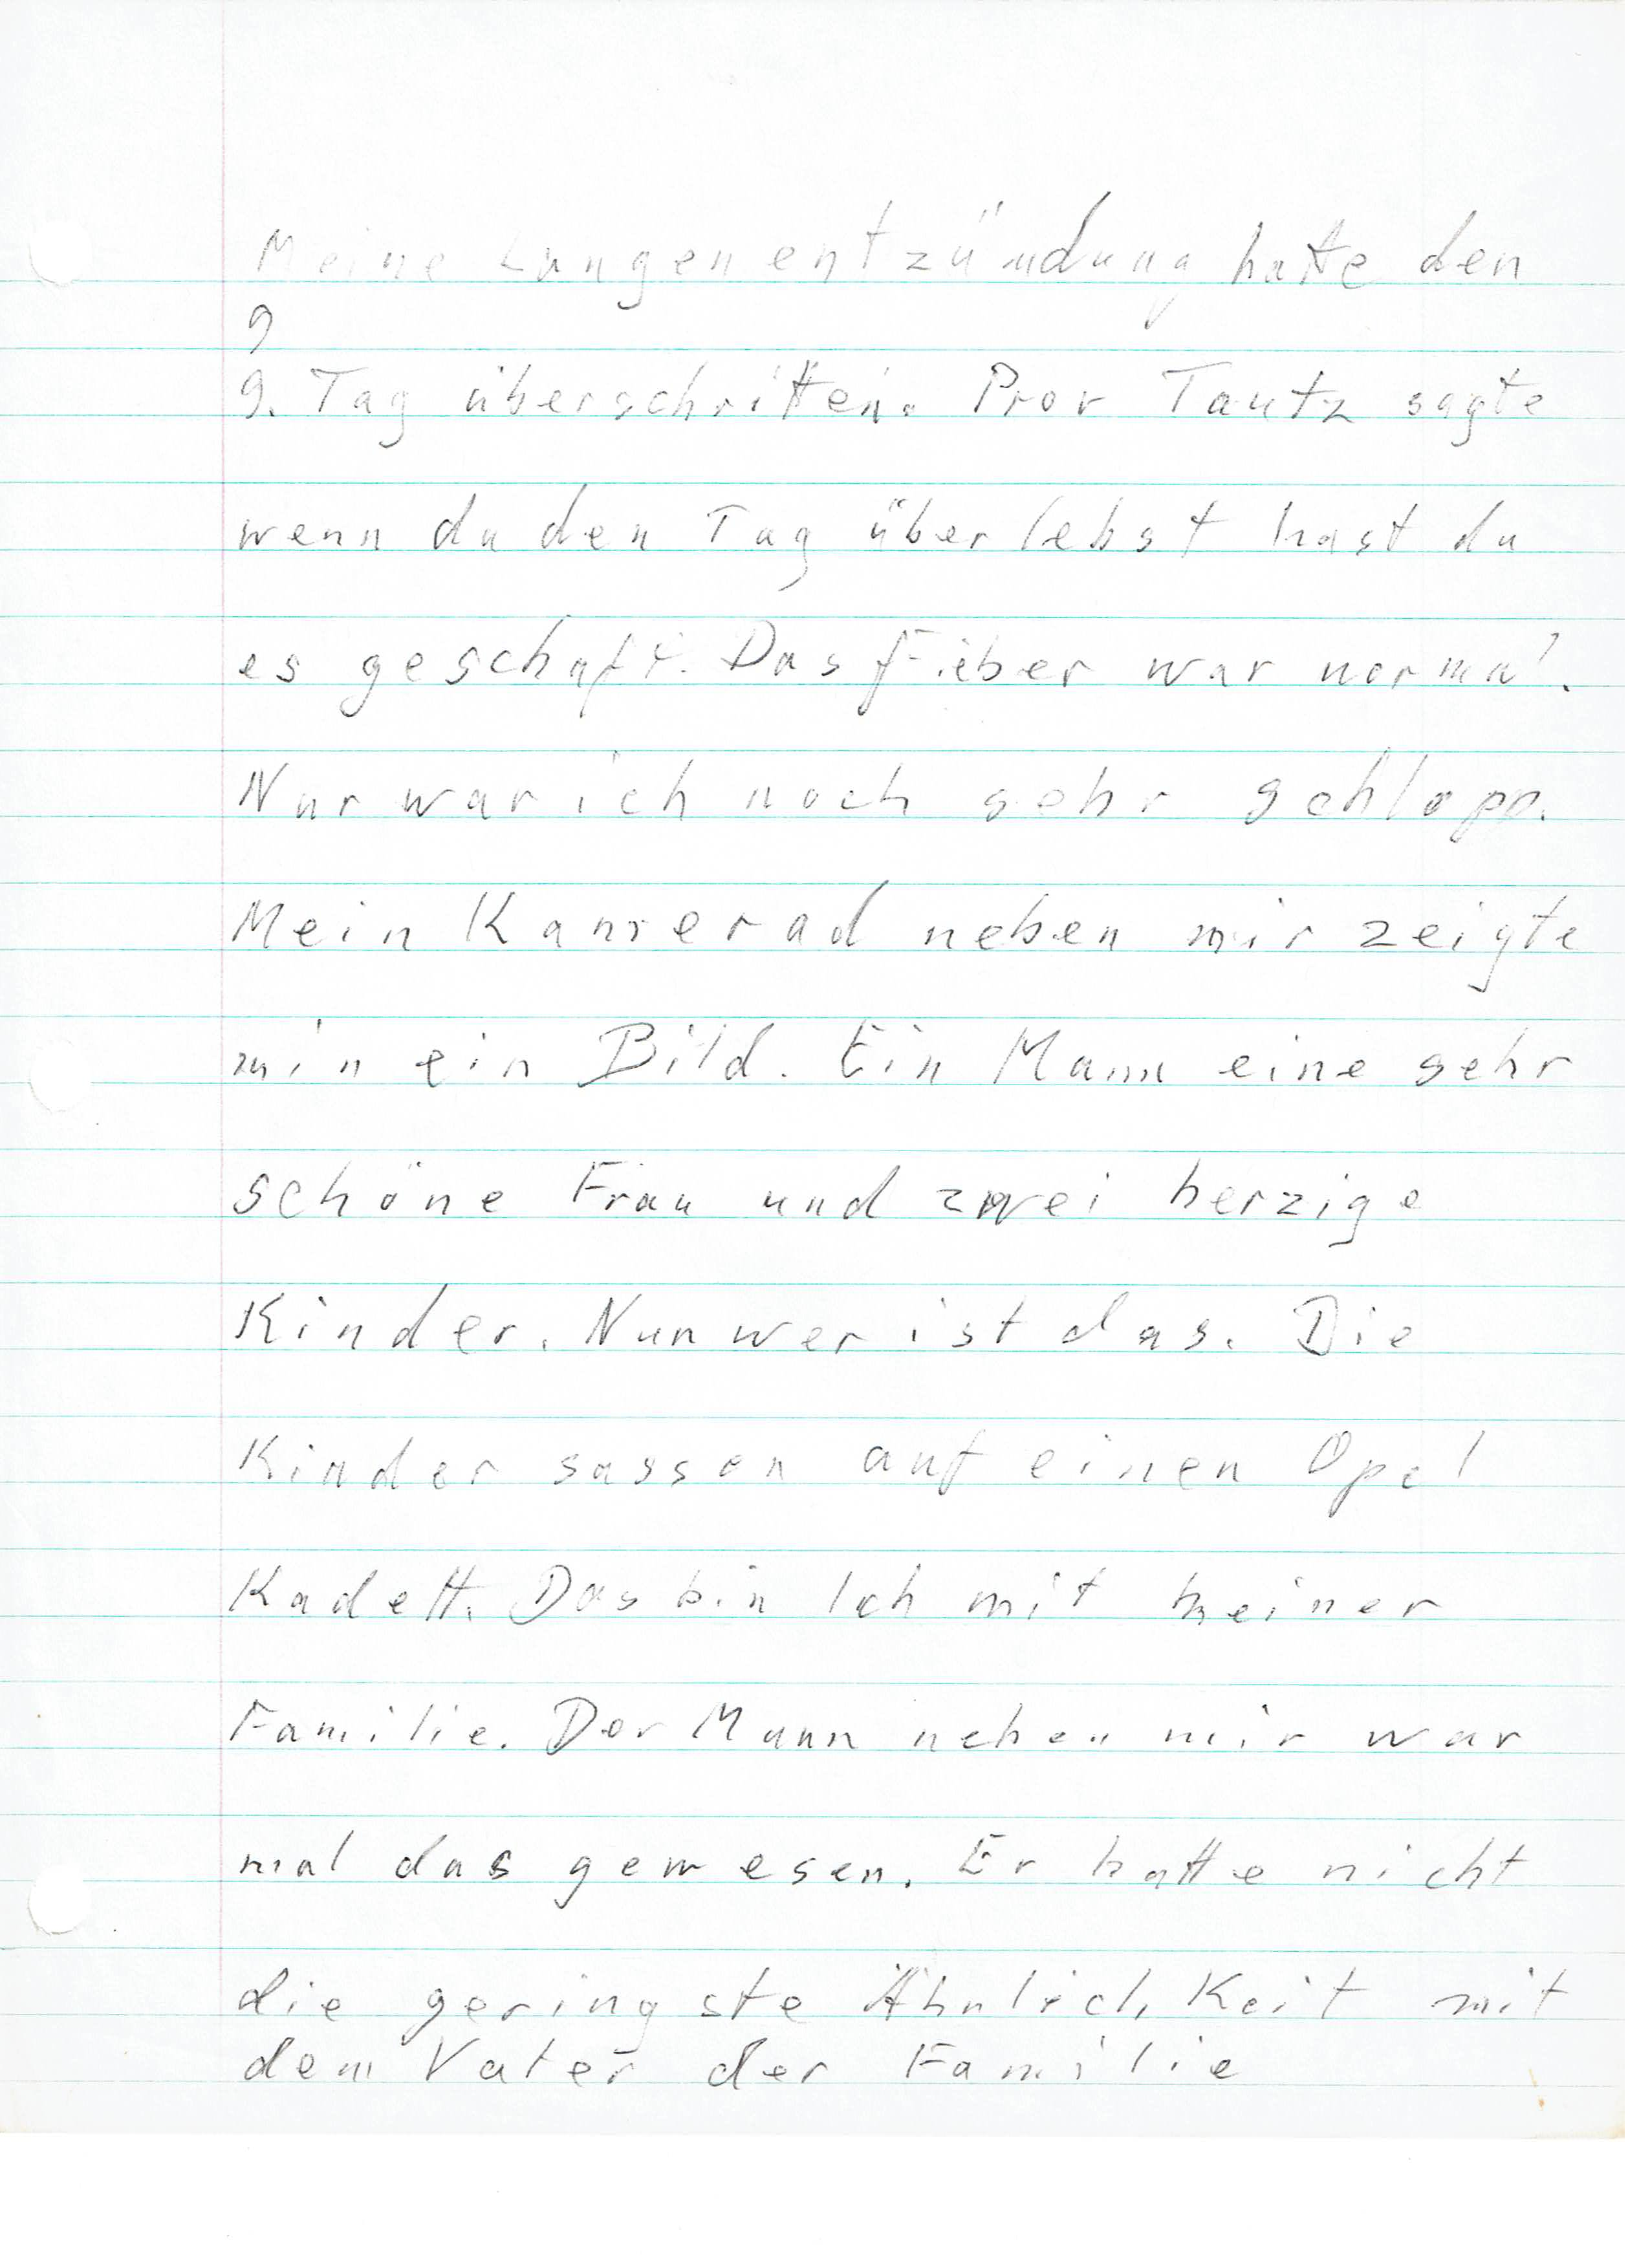 Meine Lungenentzündung hatte den
9
9. Tag überschritten. Prov Tautz sagte
wenn du den Tag überlebst hast du
es geschaft. Das Fieber war normal.
Nur war ich noch sehr schlapp.
Mein Kamerad neben mir zeigte
mir ein Bild. Ein Mann eine sehr
schöne Frau und zwei herzige
Kinder. Nun wer ist das. Die
Kinder sassen auf einen Opel
Kadett. Das bin Ich mit meiner
Familie. Der Mann neben mir war
mal das gewesen. Er hatte nicht
die geringste Ähnlichkeit mit
dem Vater der Familie